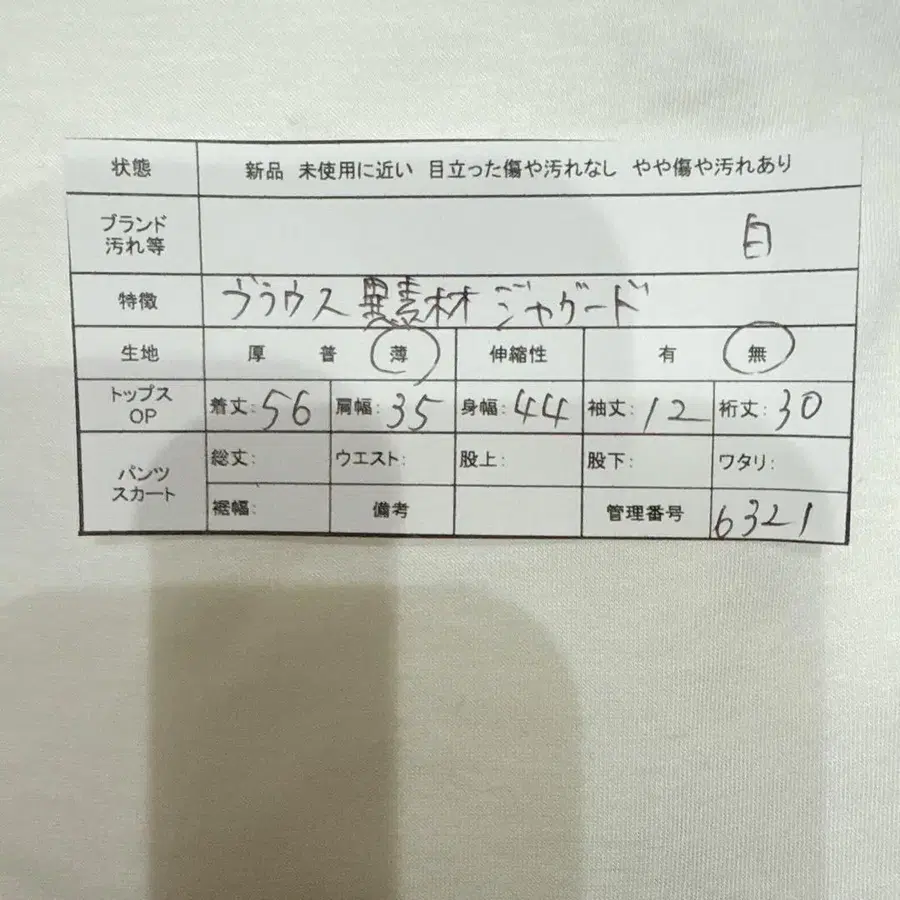 状態 新品 未使用に近い 目立った傷や汚れなし やや傷や汚れあり
ブランド
汚れ等 白
特徴 ブラウス 異素材 ジャガード
生地 厚 普 薄 伸縮性 有 無
トップス
OP 着丈: 56 肩幅: 35 身幅: 44 袖丈: 12 裄丈: 30
パンツ
スカート 総丈: ウエスト: 股上: 股下: ワタリ:
裾幅: 備考 管理番号 6321